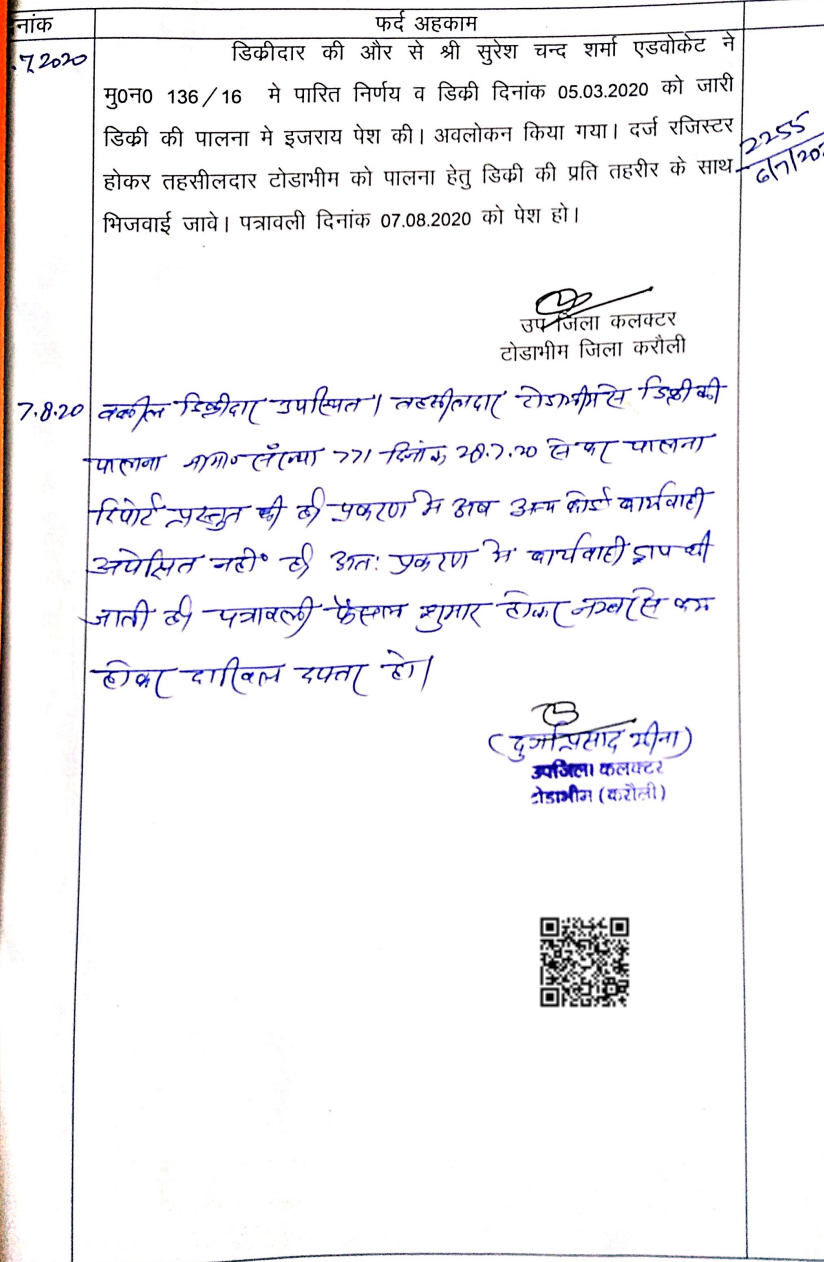 नांक फर्द अहकाम
.7.2020 डिकीदार की और से श्री सुरेश चन्द शर्मा एडवोकेट ने
मु0न0 136/16 मे पारित निर्णय व डिकी दिनांक 05.03.2020 को जारी
डिकी की पालना मे इजराय पेश की। अवलोकन किया गया। दर्ज रजिस्टर
होकर तहसीलदार टोडाभीम को पालना हेतु डिकी की प्रति तहरीर के साथ
भिजवाई जावे। पत्रावली दिनांक 07.08.2020 को पेश हो।
2255
6/7/20
उप जिला कलक्टर
टोडाभीम जिला करौली
7.8.20 वकील डिक्रीदार उपस्थित। तहसीलदार टोडाभीम से डिक्री की
पालना संख्या 771 दिनांक 28.7.20 से कर पालना
रिपोर्ट प्रस्तुत की है। प्रकरण में अब अन्य कोई कार्यवाही
अपेक्षित नहीं है। अतः प्रकरण में कार्यवाही ड्राप की
जाती है। पत्रावली फैसल शुमार होकर नम्बर से कम
होकर दाखिल दफ्तर हो।
(दुर्गाप्रसाद मीना)
उपजिला कलक्टर
टोडाभीम (करौली)